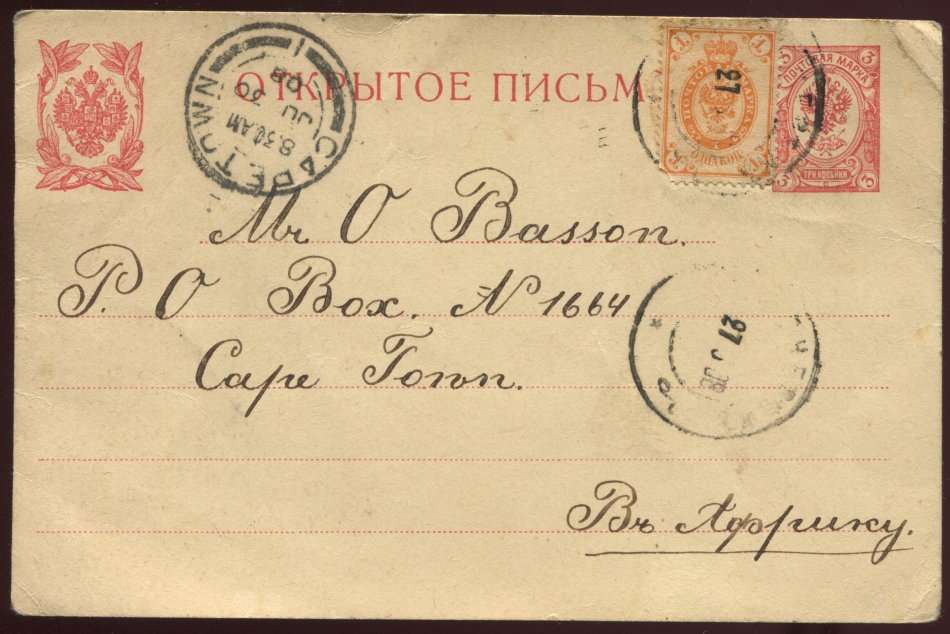 ОТКРЫТОЕ ПИСЬМО
CAPE TOWN
8.30 AM
JU 30
08
1
27
3 3
ПОЧТОВАЯ МАРКА
ТРИ КОПѢЙКИ
3 3
Mr O Basson.
P. O Box. N 1664
Cape Town.
27
08
Въ Африку.